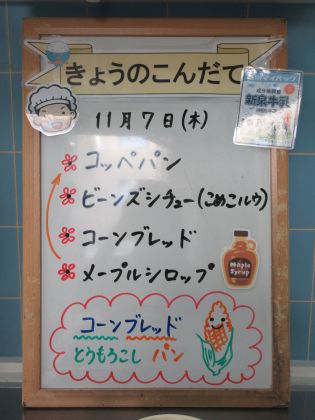 きょうのこんだて
新泉牛乳
11月7日(木)
コッペパン
ビーンズシチュー(こめこルウ)
コーンブレッド
メープルシロップ
Maple
Syrup
コーンブレッド
とうもろこし パン